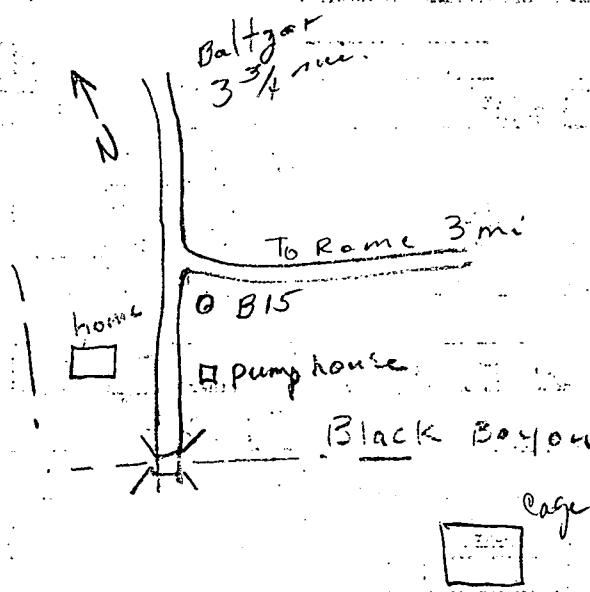 Baltzar
3 3/4 mi.
N
To Rome 3 mi
B15
house
pump house
Black Bayou
Cage